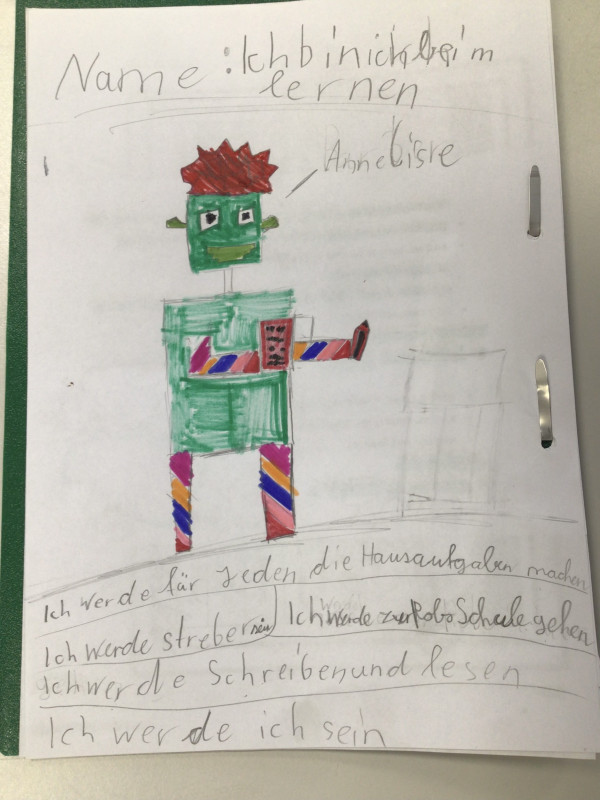 Name: Ich bin ich beim
lernen
Ich werde für Jeden die Hausaufgaben machen
Ich werde streber sein
Ich werde zur Robo Schule gehen
Ich werde Schreiben und lesen
Ich werde ich sein